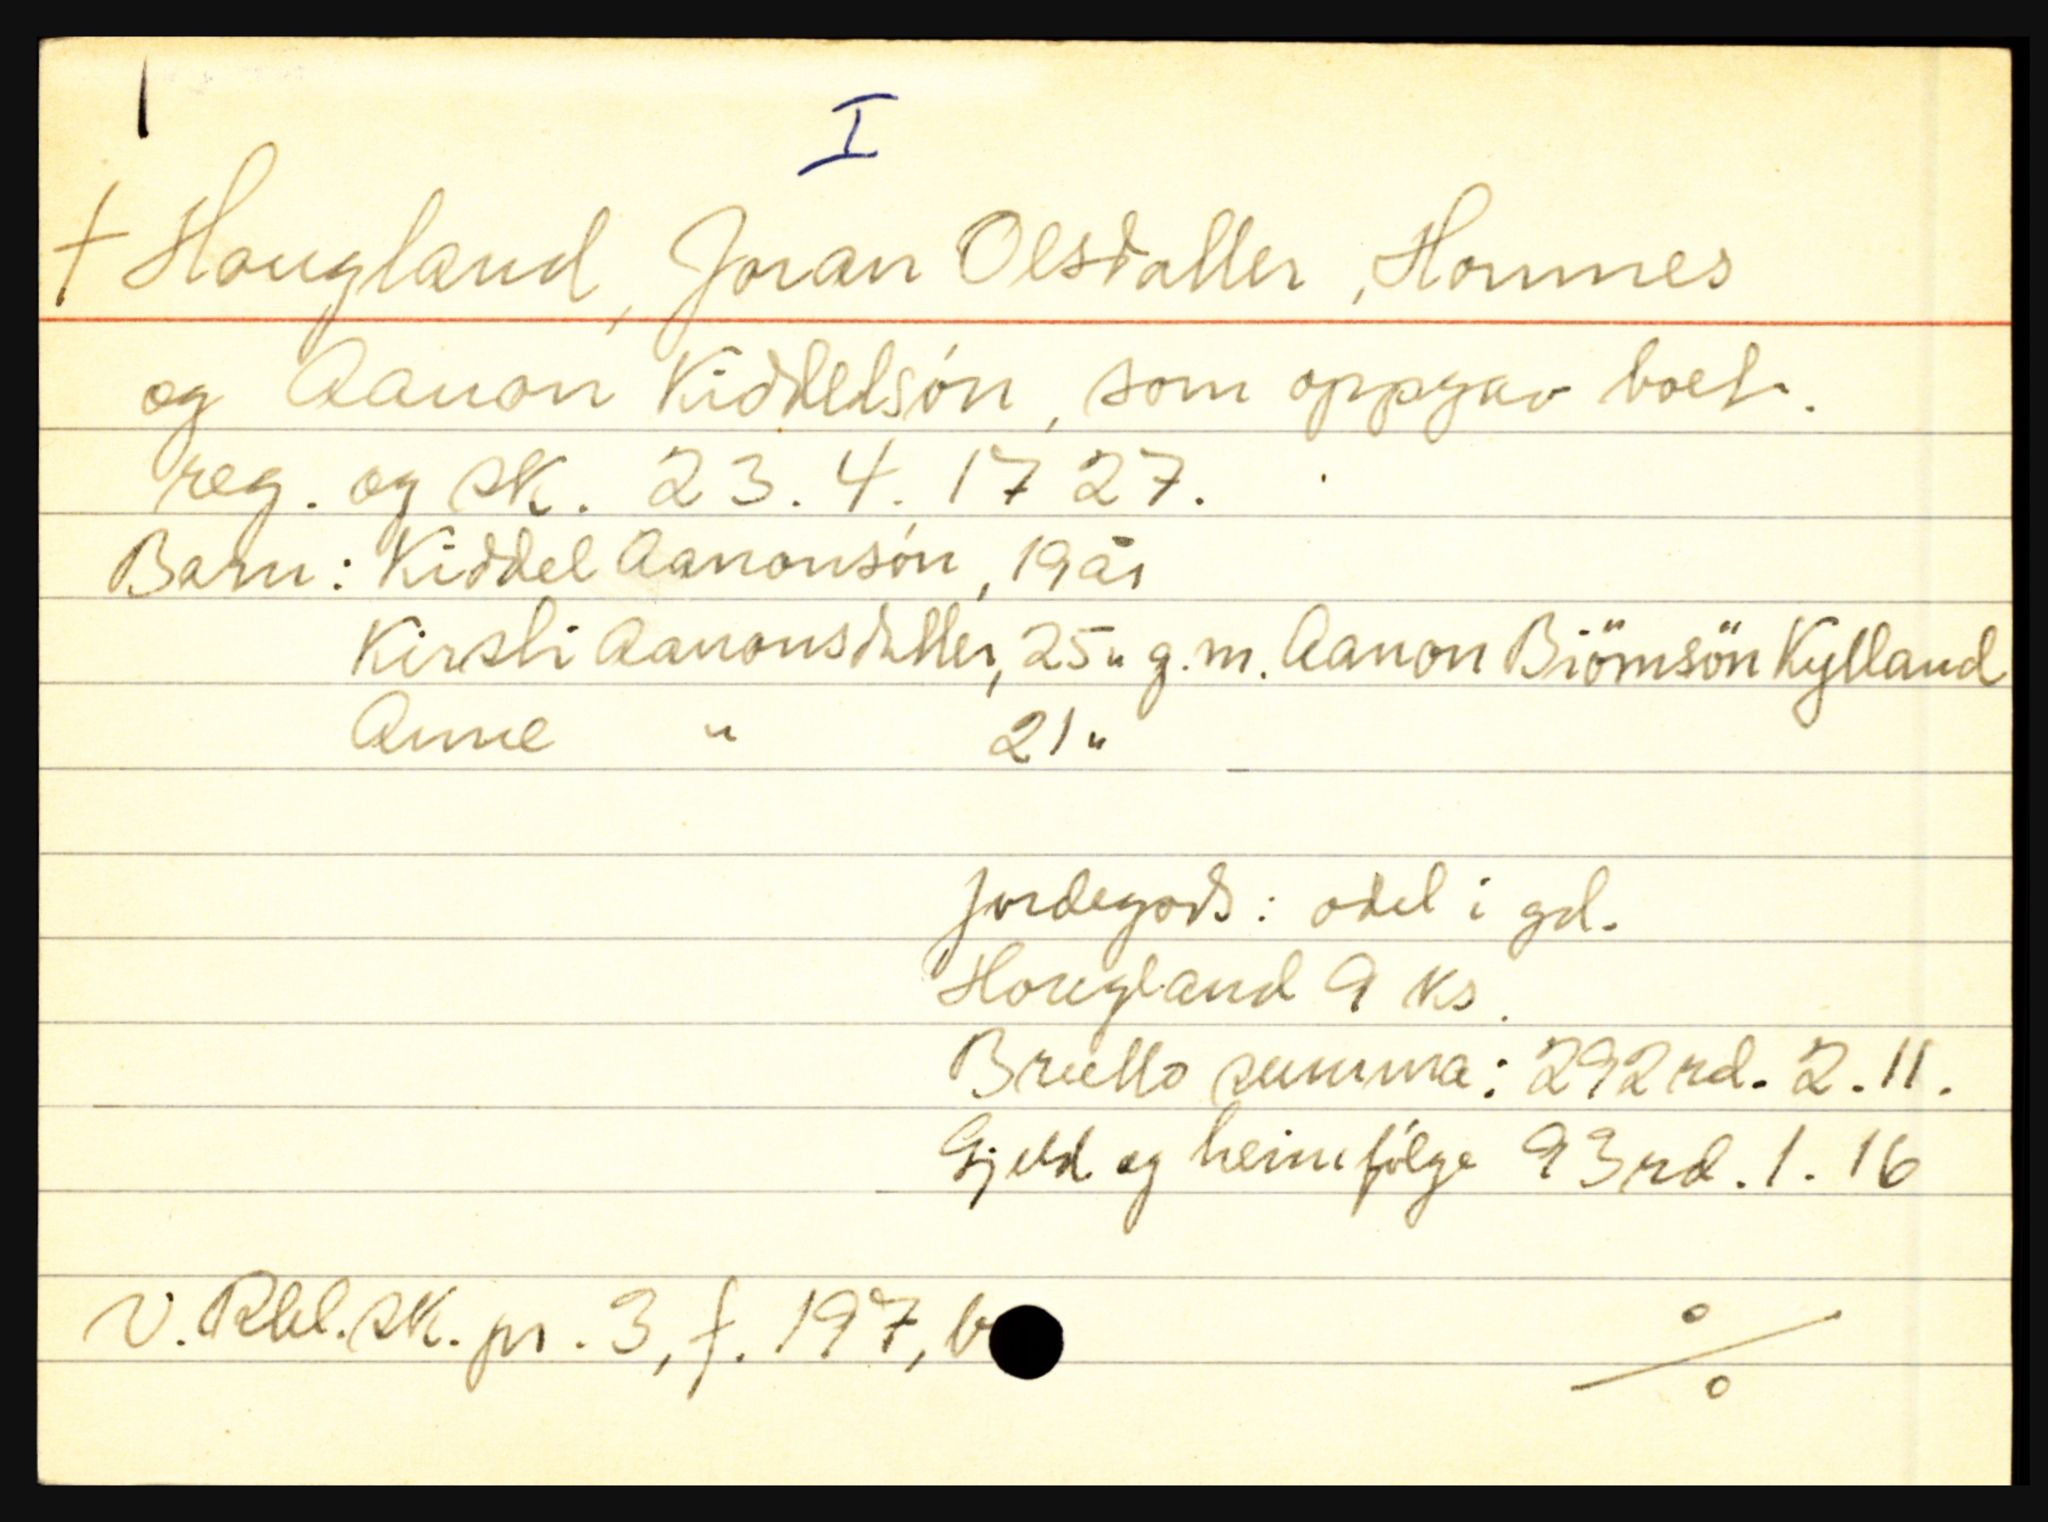 I
† Hougland, Joran Olsdatter, Hommes
og Aanon Kiddelsón, som oppgav boet.
reg. og sk. 23.4.1727.
Barn: Kiddel Aanonsón, 19 år
Kirsti Aanonsdatter, 25 " g.m. Aanon Biörnsön Kylland
Anne " 21 "
Jordegods: odel i gd.
Hougland 9 ks.
Brutto summa: 292 rd. 2. 11.
Gjeld og heimfólge 93 rd. 1. 16
V. Rbl. sk. pr. 3, f. 197, b
%